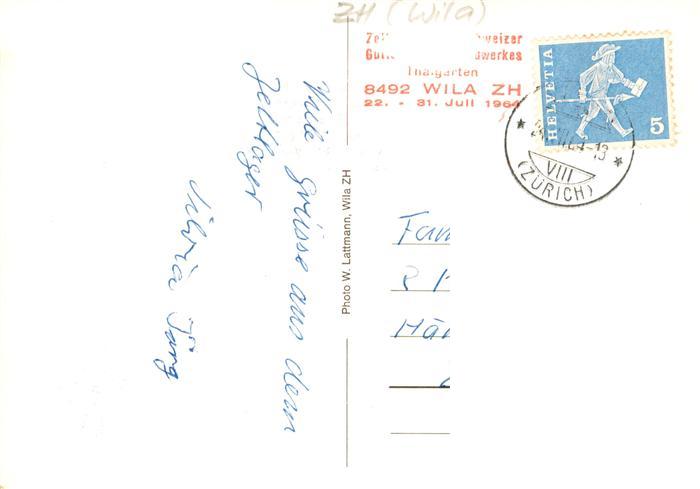 ZH (Wila)
weizer
werkes
Thalgarten
8492 WILA ZH
22. - 31. Juli 1964
HELVETIA
5
-13
VIII
(ZÜRICH)
Viele grüsse aus dem
Zeltlager
Silvia Jürg
Photo W. Lattmann, Wila ZH
Fam
Hä